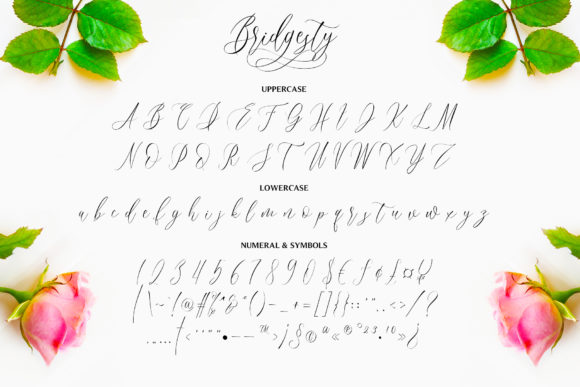 Bridgesty
UPPERCASE
A B C D E F G H I J K L M
N O P Q R S T U V W X Y Z
LOWERCASE
a b c d e f g h i j k l m n o p q r s t u v w x y z
NUMERAL & SYMBOLS
1 2 3 4 5 6 7 8 9 0 $ € ƒ ¢ £ ¤ ¥
| \ ~ ` ! @ # % ^ & * ( ) - _ + = [ ] { } : ; " ' , . < > / ?